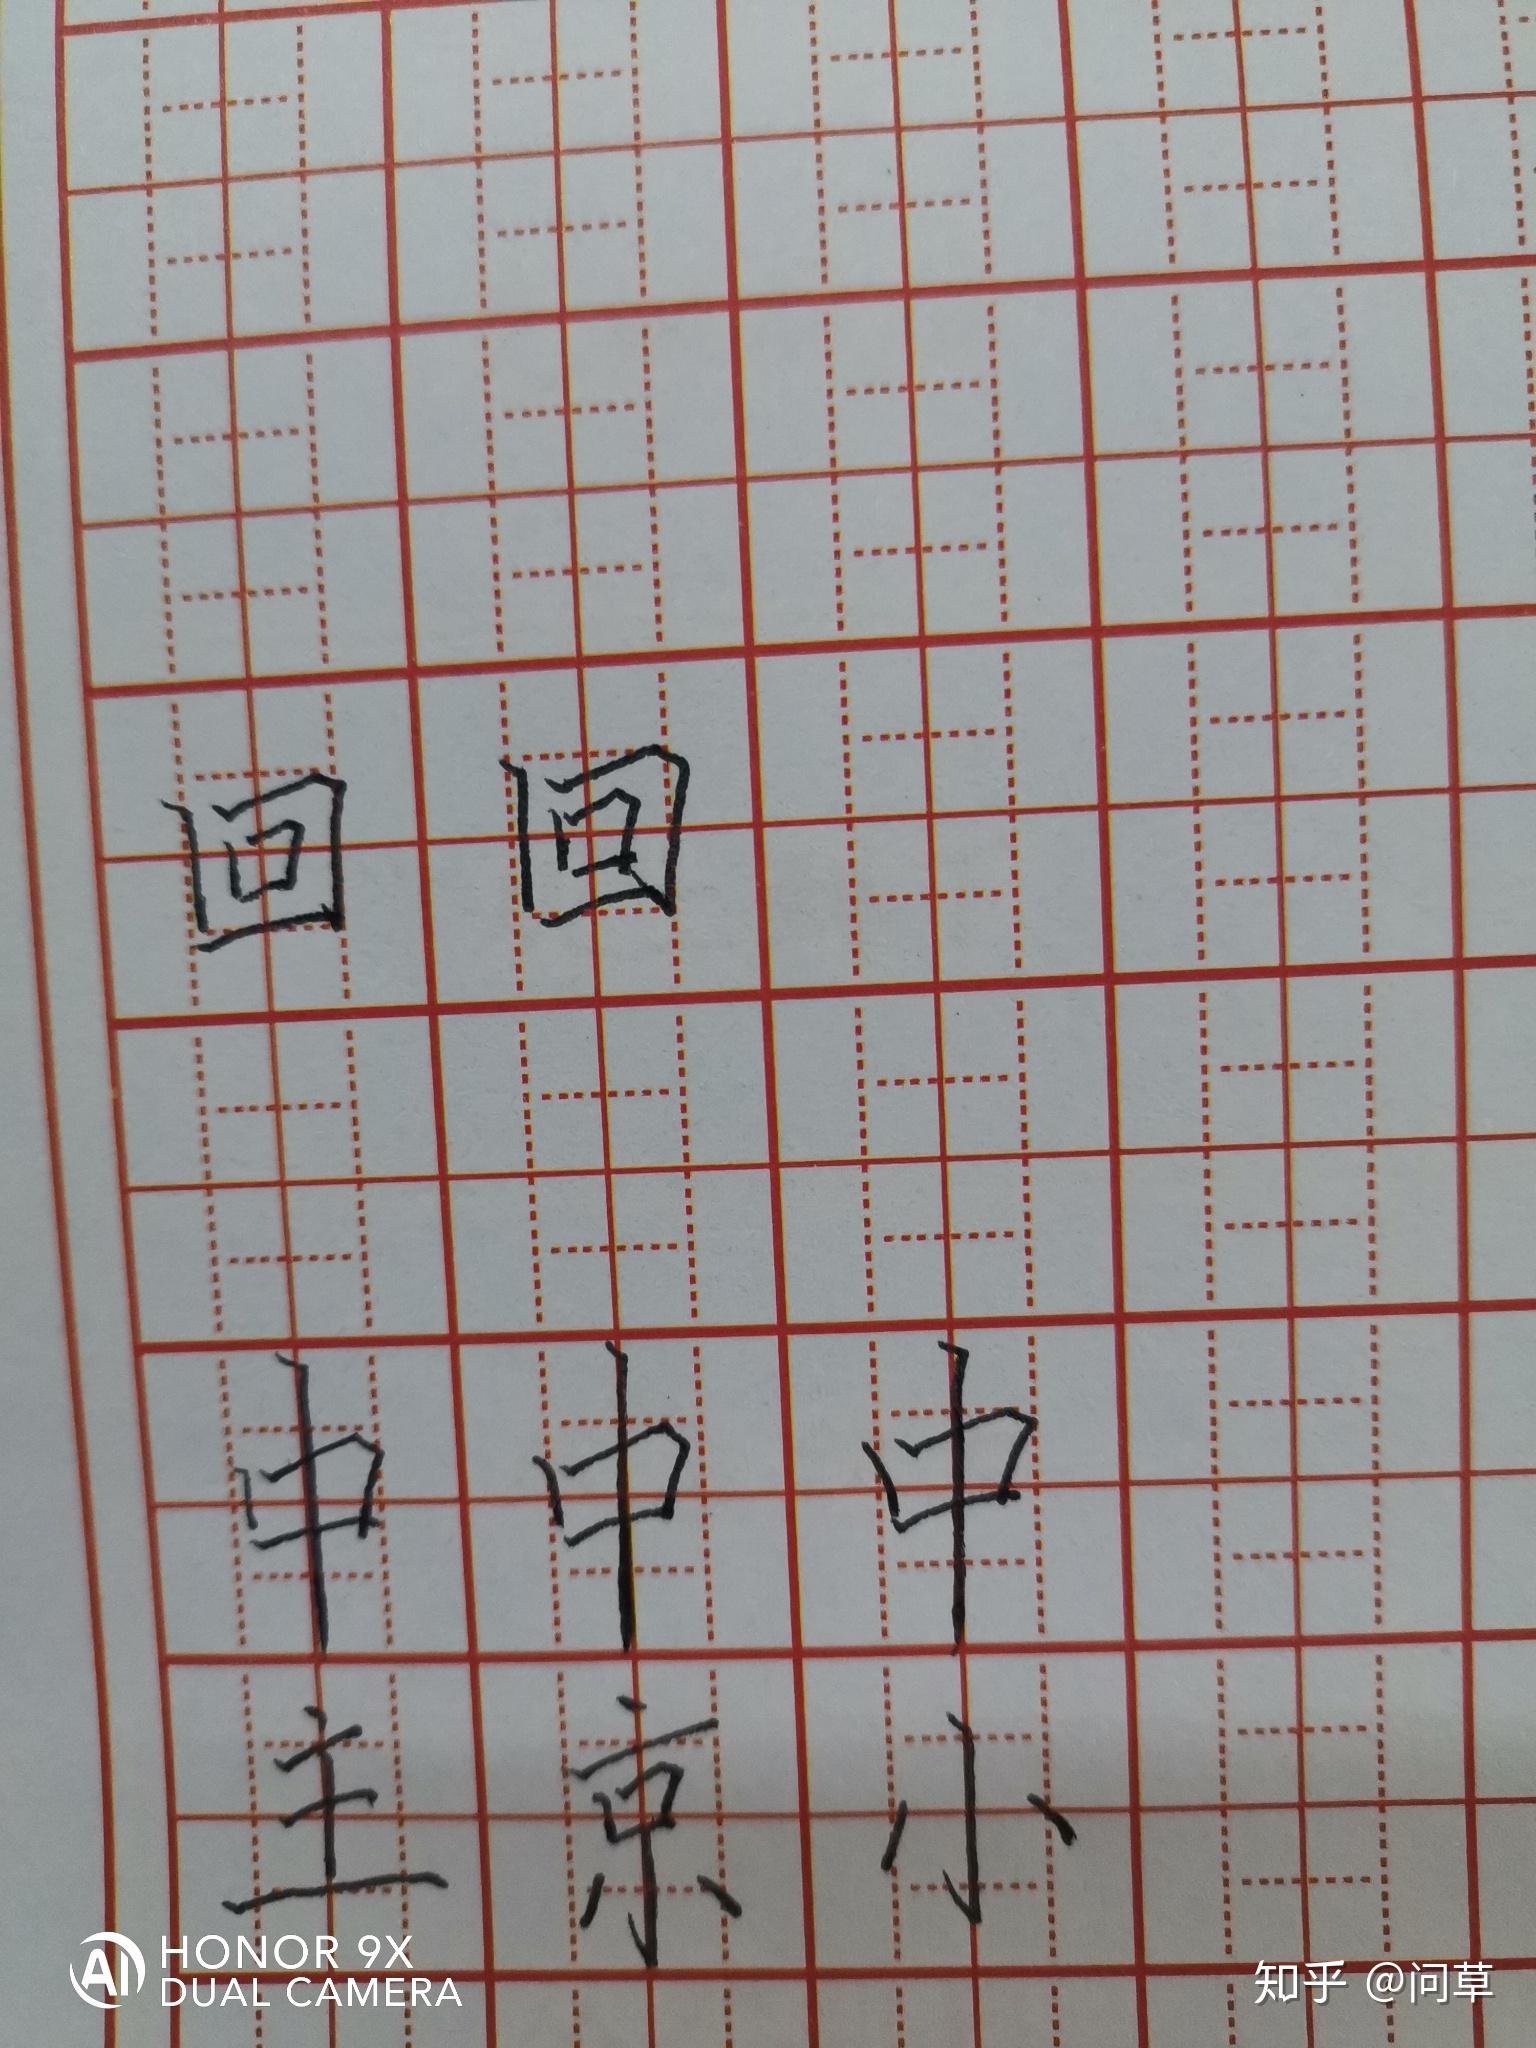 回回
中中中
主京小
HONOR 9X
DUAL CAMERA
知乎 @问草